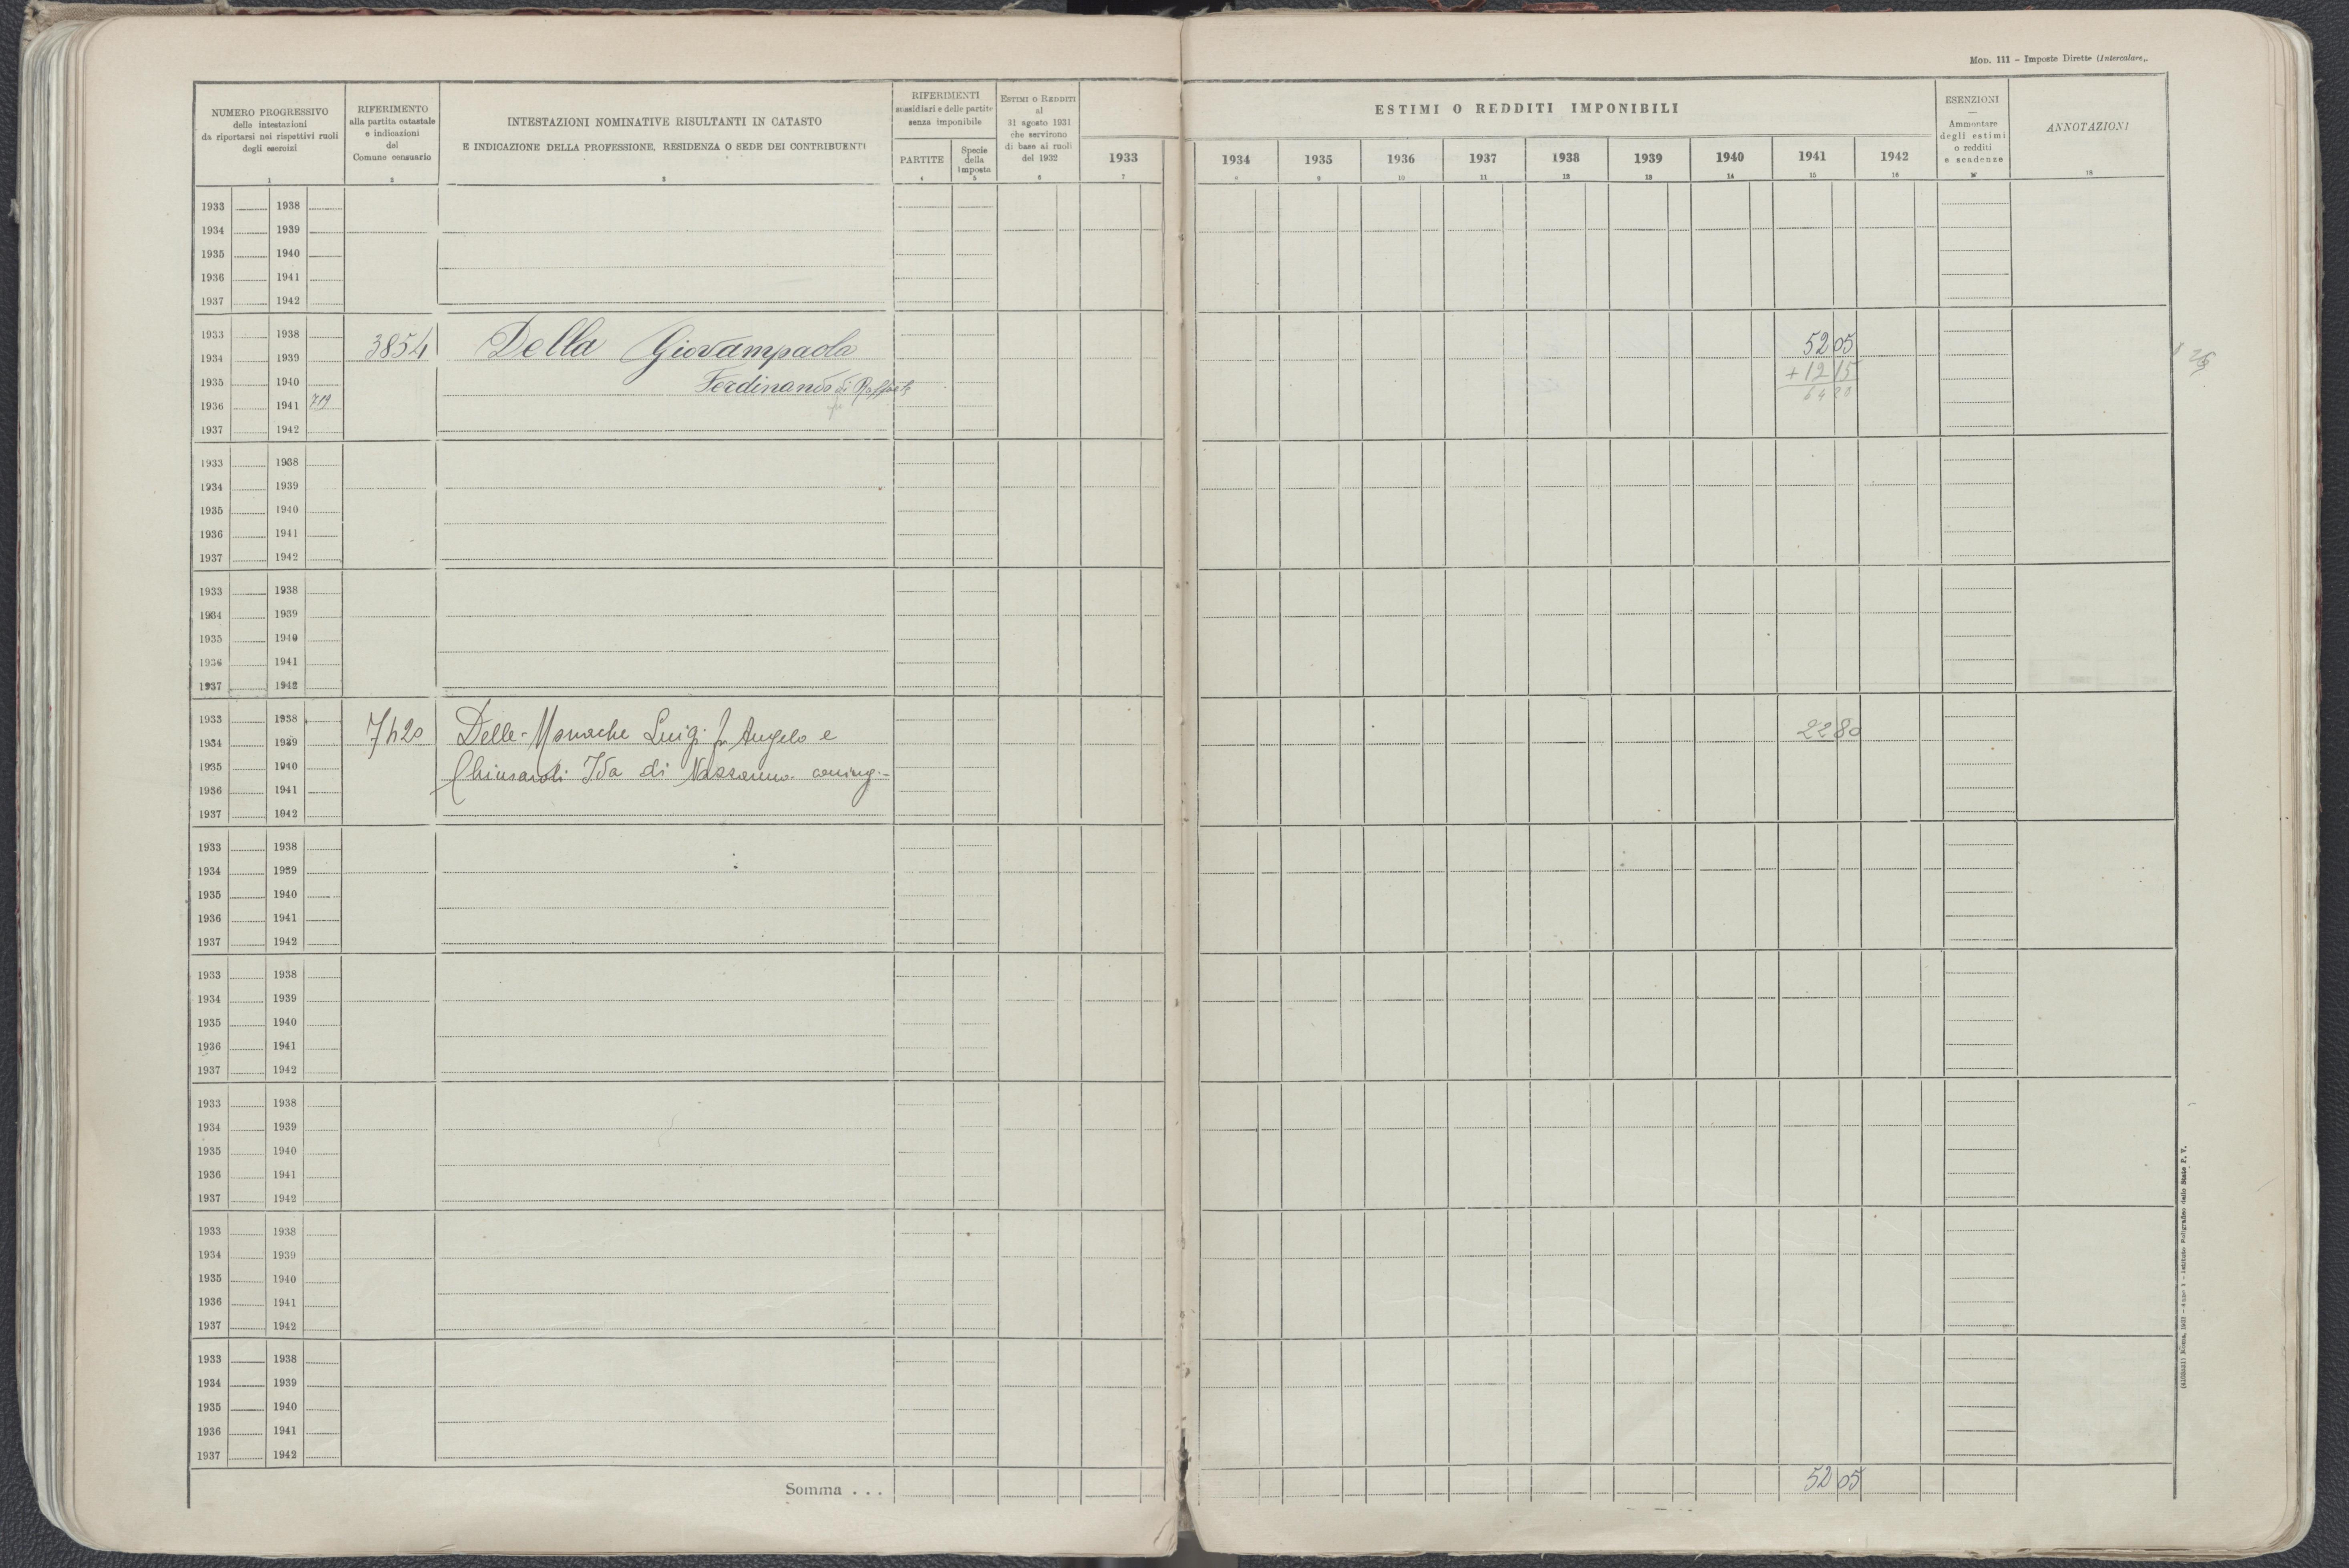 MOD. 111 – Imposte Dirette (Intercalare).
NUMERO PROGRESSIVO
delle intestazioni
da riportarsi nei rispettivi ruoli
degli esercizi
1
RIFERIMENTO
alla partita catastale
e indicazioni
del
Comune censuario
2
INTESTAZIONI NOMINATIVE RISULTANTI IN CATASTO
E INDICAZIONE DELLA PROFESSIONE, RESIDENZA O SEDE DEI CONTRIBUENTI
3
RIFERIMENTI
sussidiari e delle partite
senza imponibile
PARTITE
4
Specie
della
imposta
5
ESTIMI O REDDITI
al
31 agosto 1931
che servirono
di base ai ruoli
del 1932
6
ESTIMI O REDDITI IMPONIBILI
1933 1934 1935 1936 1937 1938 1939 1940 1941 1942
7 8 9 10 11 12 13 14 15 16
ESENZIONI
—
Ammontare
degli estimi
o redditi
e scadenze
17
ANNOTAZIONI
18
1933 1938
1934 1939
1935 1940
1936 1941
1937 1942
1933 1938
1934 1939 3854 Della Giovampaola 5205
1935 1940 Ferdinando di Raffaele + 1215
1936 1941 719 6420
1937 1942
1933 1938
1934 1939
1935 1940
1936 1941
1937 1942
1933 1938
1934 1939
1935 1940
1936 1941
1937 1942
1933 1938
1934 1939 7420 Delle Monache Luigi fu Angelo e 2280
1935 1940 Chiusaroli Ida di Nazzareno coniug.
1936 1941
1937 1942
1933 1938
1934 1939
1935 1940
1936 1941
1937 1942
1933 1938
1934 1939
1935 1940
1936 1941
1937 1942
1933 1938
1934 1939
1935 1940
1936 1941
1937 1942
1933 1938
1934 1939
1935 1940
1936 1941
1937 1942
1933 1938
1934 1939
1935 1940
1936 1941
1937 1942
Somma . . . 5205
Istituto Poligrafico dello Stato P. V.